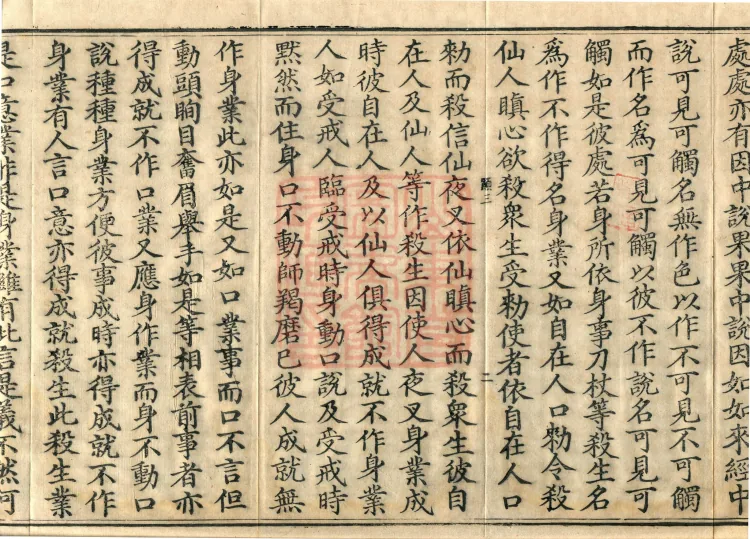 處處亦有因中說果果中說因如如來經中
說可見可觸名無作色以作不可見不可觸
而作名為可見可觸以彼不作說名可見可
觸如是彼處若身所依身事刀杖等殺生名
為作不作得名身業又如自在人口勑令殺
仙人瞋心欲殺衆生受勑使者依自在人口
勑而殺信仙夜叉依仙瞋心而殺衆生彼自
在人及仙人等作殺生因使人夜叉身業成
時彼自在人及以仙人俱得成就不作身業
人如受戒人臨受戒時身動口說及受戒時
黙然而住身口不動師羯磨已彼人成就無
作身業此亦如是又如口業事而口不言但
動頭眴目奮眉舉手如是等相表前事者亦
得成就不作口業又應身作業而身不動口
說種種身業方便彼事成時亦得成就不作
身業有人言口意亦得成就殺生此殺生業
是口意業非是身業雖有此言是義不然可